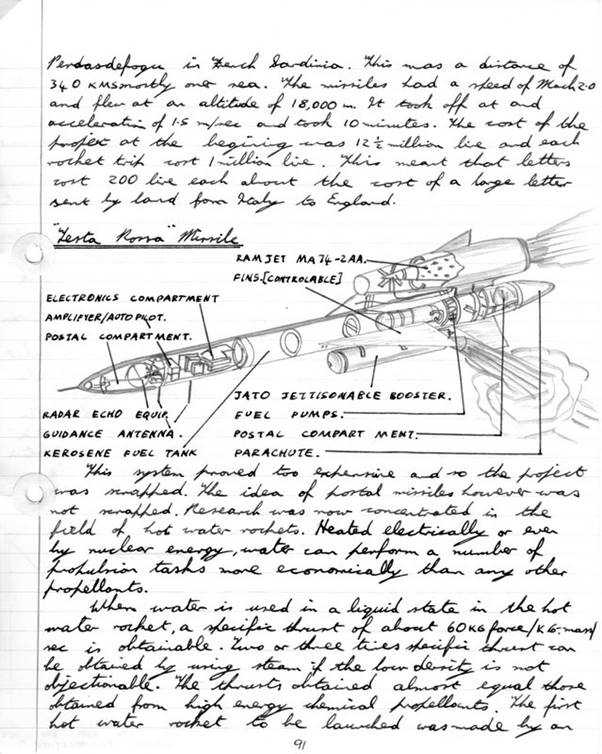 Perdasdefogu in French Sardinia. This was a distance of
340 KMS mostly over sea. The missiles had a speed of Mach 2.0
and flew at an altitude of 18,000 m. It took off at and
acceleration of 1.5 m/sec and took 10 minutes. The cost of the
project at the begining was 12½ million lire and each
rocket trip cost 1 million lire. This meant that letters
cost 200 lire each about the cost of a large letter
sent by land from Italy to England.
"Testa Rossa" Missile
RAMJET MA74-2AA.
FINS.[CONTROLABLE]
ELECTRONICS COMPARTMENT
AMPLIFYER/AUTO PILOT.
POSTAL COMPARTMENT.
RADAR ECHO EQUIP.
GUIDANCE ANTENNA.
KEROSENE FUEL TANK
JATO JETTISONABLE BOOSTER.
FUEL PUMPS.
POSTAL COMPARTMENT.
PARACHUTE.
This system proved too expensive and so the project
was scrapped. The idea of postal missiles however was
not scrapped. Research was now concentrated in the
field of hot water rockets. Heated electrically or even
by nuclear energy, water can perform a number of
propulsion tasks more economically than any other
propellants.
When water is used in a liquid state in the hot
water rocket, a specific thrust of about 60 KG force/KG.mass/
sec is obtainable. Two or three times specific thrust can
be obtained by using steam if the low density is not
objectionable. The thrusts obtained almost equal those
obtained from high energy chemical propellants. The first
hot water rocket to be launched was made by an
91